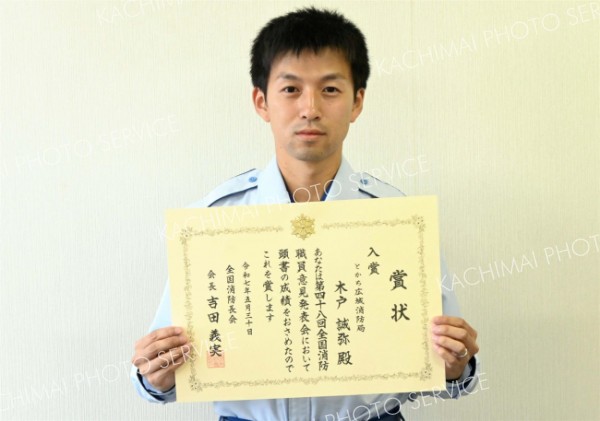 賞状
入賞
とかち広域消防局
木戸 誠弥 殿
あなたは第四十八回全国消防
職員意見発表会において
頭書の成績をおさめたので
これを賞します
令和七年五月三十日
全国消防長会
会長 吉田 義実
KACHIMAI PHOTO SERVICE
KACHIMAI PHOTO SERVICE
KACHIMAI PHOTO SERVICE
KACHIMAI PHOTO SERVICE